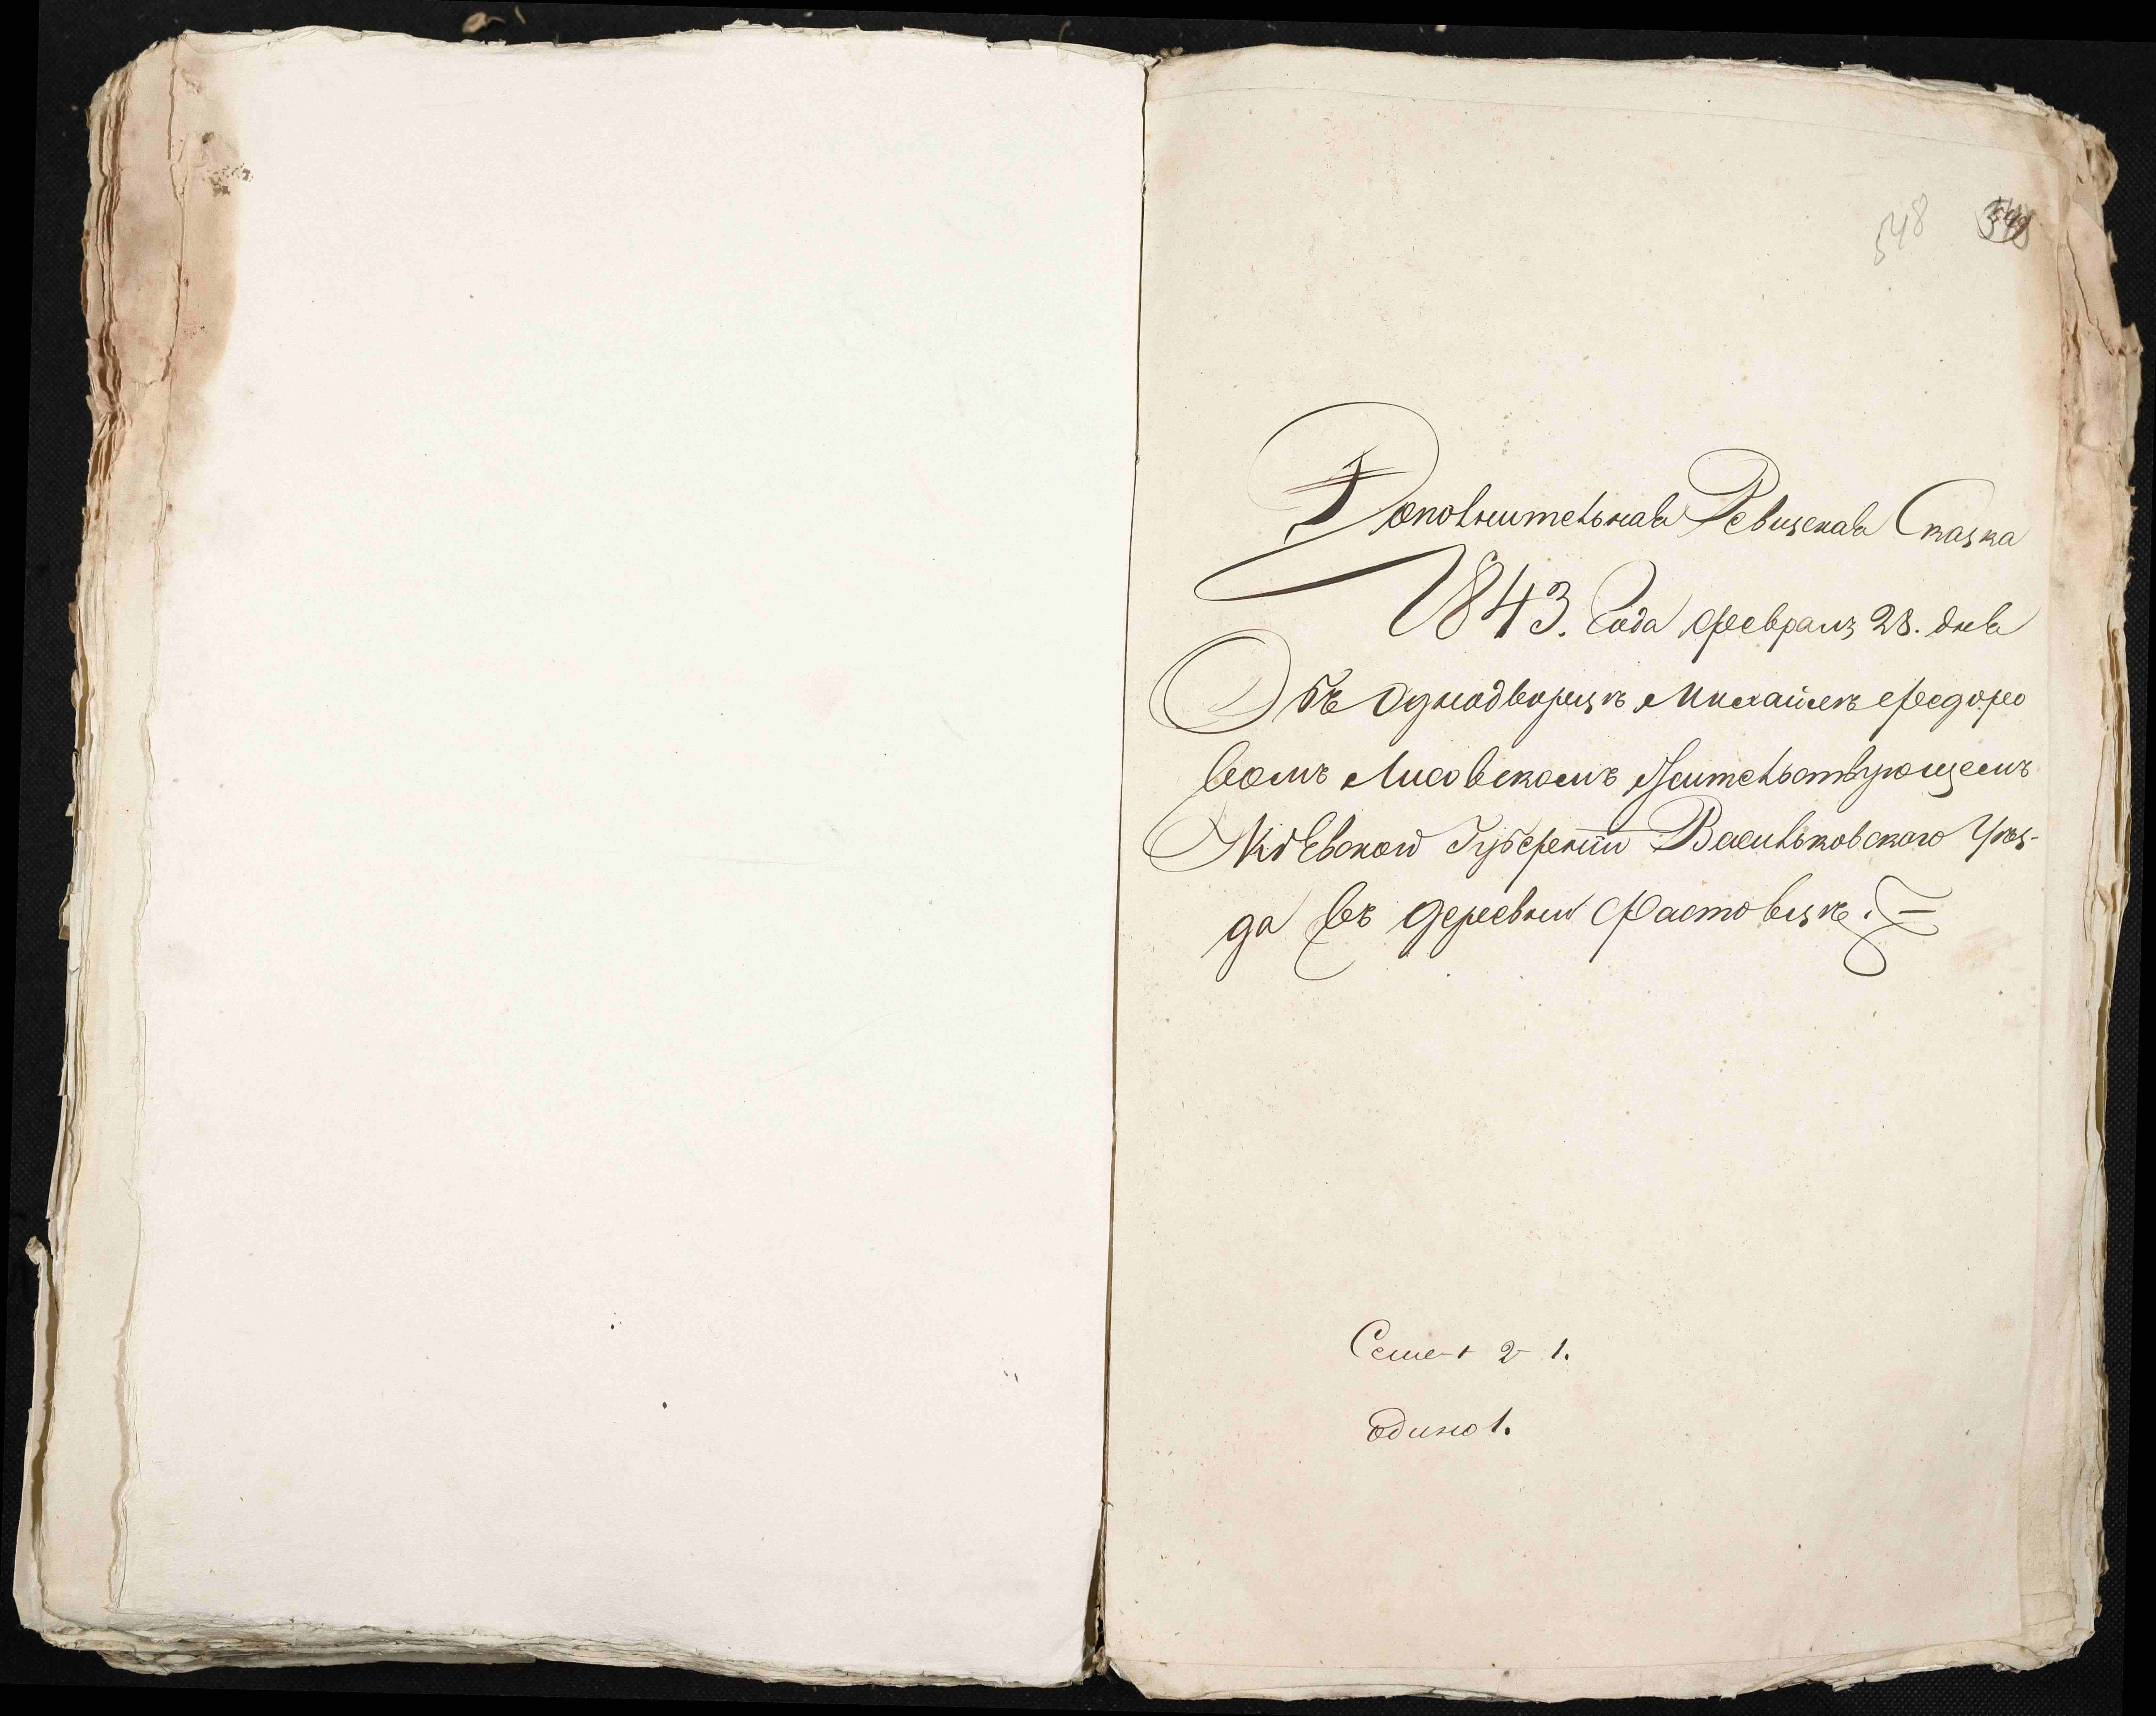 548
Дополнительная Ревизская Сказка
1843. Года февраля 28. дня
Объ Однодворцѣ Михайлѣ Федоро
вомъ Лисовскомъ Жительствующемъ
Кіевской Губерніи Васильковского Уѣз-
да въ деревни Фастовцѣ.
Семе- 1 2- 1.
Одино 1.